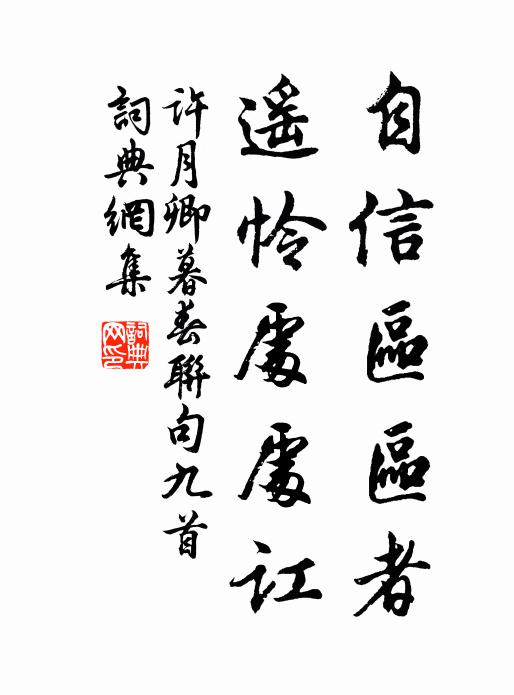 自信區區者
遥怜處處訌
許月卿暮春聯句九首
詞典網集
詞典網印